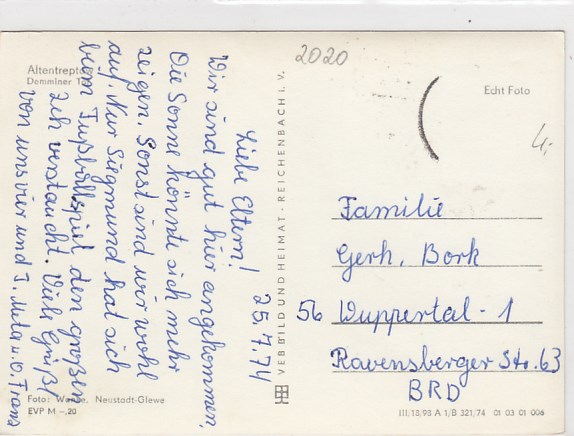 Altentreptow
Demminer Tor
25.7.74
Liebe Eltern!
Wir sind gut hier angekommen,
Die Sonne könnte sich mehr
zeigen. Sonst sind wir wohl
auf. Nur Siegmund hat sich
beim Fußballspiel den großen
Zeh verstaucht. Viele Grüße
von uns vier und T. Meta u. O. Franz
Foto: Wanke, Neustadt-Glewe
EVP M -,20
VEB BILD UND HEIMAT · REICHENBACH I. V.
2020
Echt Foto
4,-
Familie
Gerh. Bork
56 Wuppertal - 1
Ravensberger Str. 63
BRD
III/18/98 A 1/B 321/74 01 03 01 006